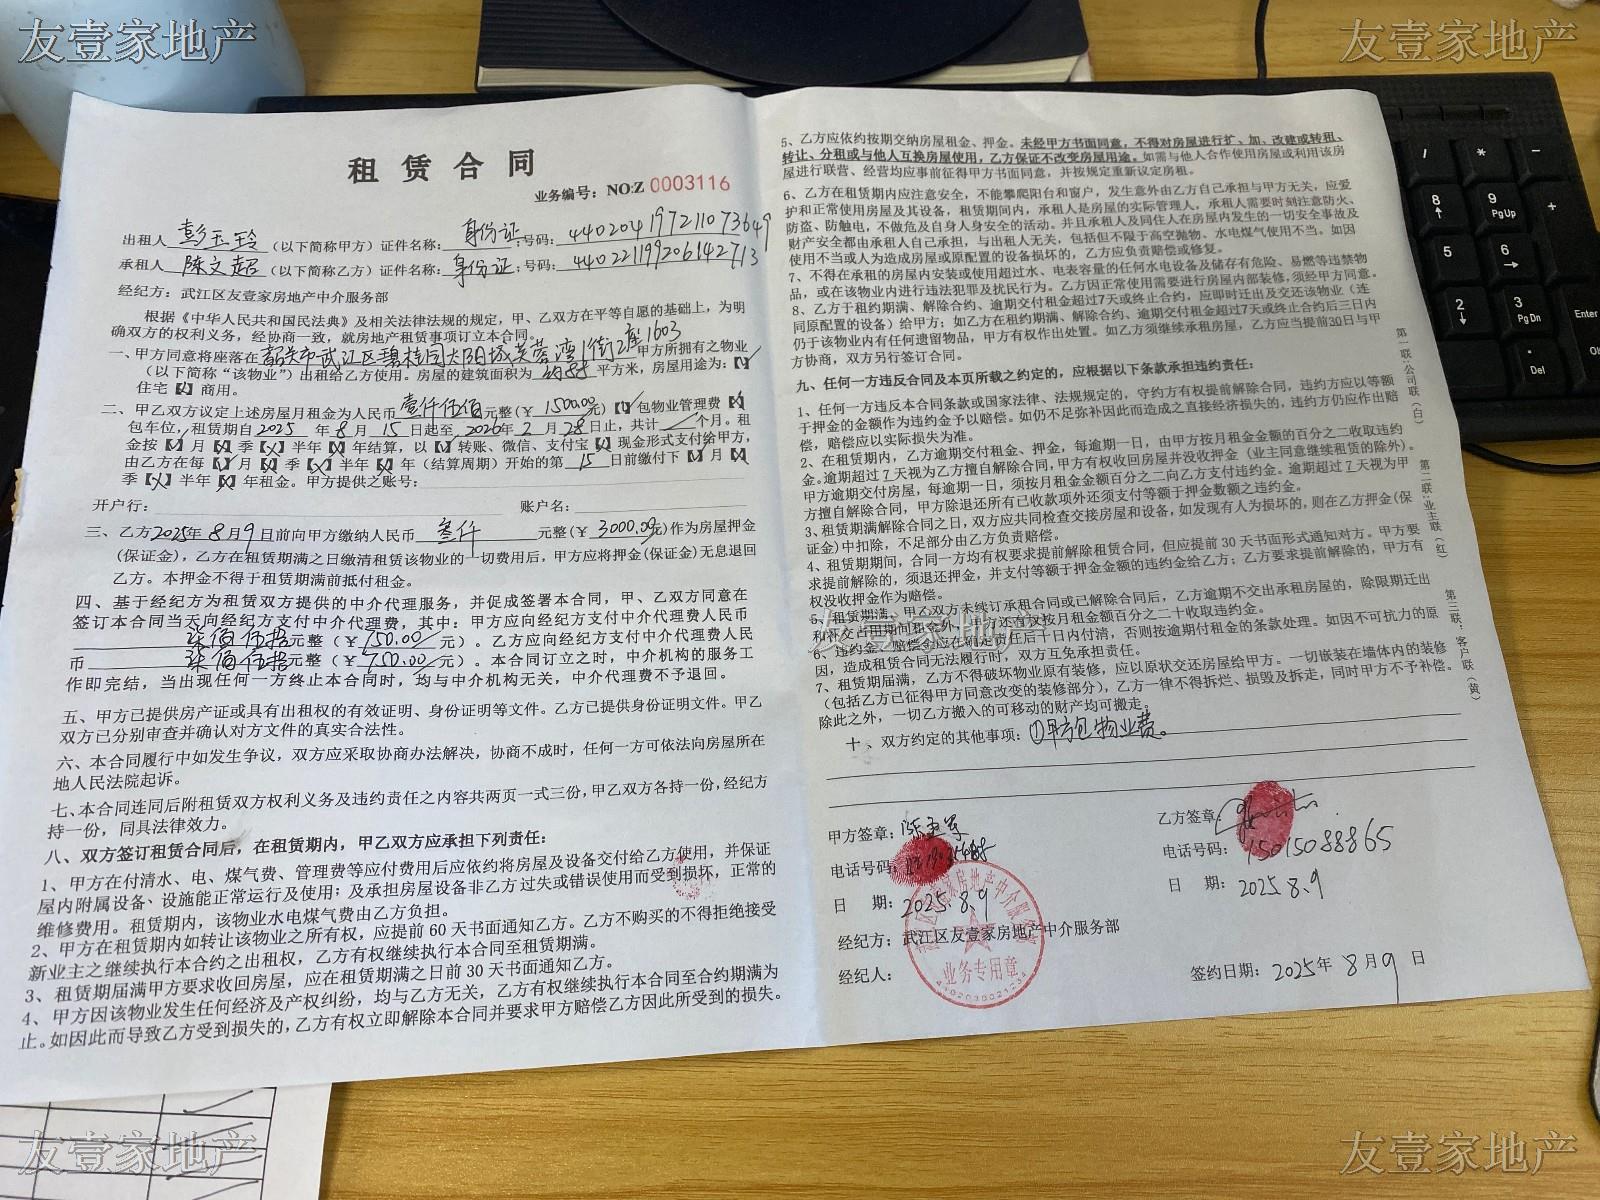 友壹家地产
友壹家地产
租赁合同
业务编号：NO:Z 0003116
出租人 彭玉玲 （以下简称甲方）证件名称：身份证 号码：440204197211073649
承租人 陈文超 （以下简称乙方）证件名称：身份证 号码：440221199206142713
经纪方：武江区友壹家房地产中介服务部
根据《中华人民共和国民法典》及相关法律法规的规定，甲、乙双方在平等自愿的基础上，为明
确双方的权利义务，经协商一致，就房地产租赁事项订立本合同。
一、甲方同意将座落在韶关市武江区碧桂园太阳城芙蓉湾1街2座1603 甲方所拥有之物业
（以下简称“该物业”）出租给乙方使用。房屋的建筑面积为 约88 平方米，房屋用途为：【✓】
住宅【】商用。
二、甲乙双方议定上述房屋月租金为人民币 壹仟伍佰 元整（￥1500.00元）【】包物业管理费【】
包车位，租赁期自2025 年 8 月 15 日起至 2026年 2 月 28日止，共计 个月。租
金按【】月【】季【】半年【】年结算，以【】转账、微信、支付宝【】现金形式支付给甲方，
由乙方在每【】月【】季【】半年【】年（结算周期）开始的第 15 日前缴付下【】月【】
季【】半年【】年租金。甲方提供之账号：
开户行： 账户名：
三、乙方2025年8月9日前向甲方缴纳人民币 叁仟 元整（￥3000.00元）作为房屋押金
（保证金），乙方在租赁期满之日缴清租赁该物业的一切费用后，甲方应将押金(保证金)无息退回
乙方。本押金不得于租赁期满前抵付租金。
四、基于经纪方为租赁双方提供的中介代理服务，并促成签署本合同，甲、乙双方同意在
签订本合同当天向经纪方支付中介代理费，其中：甲方应向经纪方支付中介代理费人民币
柒佰伍拾元整（￥750.00元）。乙方应向经纪方支付中介代理费人民
币 柒佰伍拾元整（￥750.00元）。本合同订立之时，中介机构的服务工
作即完结，当出现任何一方终止本合同时，均与中介机构无关，中介代理费不予退回。
五、甲方已提供房产证或具有出租权的有效证明、身份证明等文件。乙方已提供身份证明文件。甲乙
双方已分别审查并确认对方文件的真实合法性。
六、本合同履行中如发生争议，双方应采取协商办法解决，协商不成时，任何一方可依法向房屋所在
地人民法院起诉。
七、本合同连同后附租赁双方权利义务及违约责任之内容共两页一式三份，甲乙双方各持一份，经纪方
持一份，同具法律效力。
八、双方签订租赁合同后，在租赁期内，甲乙双方应承担下列责任：
1、甲方在付清水、电、煤气费、管理费等应付费用后应依约将房屋及设备交付给乙方使用，并保证
屋内附属设备、设施能正常运行及使用；及承担房屋设备非乙方过失或错误使用而受到损坏，正常的
维修费用。租赁期内，该物业水电煤气费由乙方负担。
2、甲方在租赁期内如转让该物业之所有权，应提前 60 天书面通知乙方。乙方不购买的不得拒绝接受
新业主之继续执行本合约之出租权，乙方有权继续执行本合同至租赁期满。
3、租赁期届满甲方要求收回房屋，应在租赁期满之日前 30 天书面通知乙方。
4、甲方因该物业发生任何经济及产权纠纷，均与乙方无关，乙方有权继续执行本合同至合约期满为
止。如因此而导致乙方受到损失的，乙方有权立即解除本合同并要求甲方赔偿乙方因此所受到的损失。
5、乙方应依约按期交纳房屋租金、押金。未经甲方书面同意，不得对房屋进行扩、加、改建或转租、
转让、分租或与他人互换房屋使用，乙方保证不改变房屋用途。如需与他人合作使用房屋或利用该房
屋进行联营、经营均应事前征得甲方书面同意，并按规定重新议定房租。
6、乙方在租赁期内应注意安全，不能攀爬阳台和窗户，发生意外由乙方自己承担与甲方无关，应爱
护和正常使用房屋及其设备，租赁期间内，承租人是房屋的实际管理人，承租人需要时刻注意防火、
防盗、防触电，不做危及自身人身安全的活动。并且承租人及同住人在房屋内发生的一切安全事故及
财产安全都由承租人自己承担，与出租人无关，包括但不限于高空抛物、水电煤气使用不当。如因
使用不当或人为造成房屋或原配置的设备损坏的，乙方应负责赔偿或修复。
7、不得在承租的房屋内安装或使用超过水、电表容量的任何水电设备及储存有危险、易燃等违禁物
品，或在该物业内进行违法犯罪及扰民行为。乙方因正常使用需要进行房屋内部装修，须经甲方同意。
8、乙方于租约期满、解除合约、逾期交付租金超过7天或终止合约，应即时迁出及交还该物业（连
同原配置的设备）给甲方；如乙方在租约期满、解除合约、逾期交付租金超过7天或终止合约后三日内
仍于该物业内有任何遗留物品，甲方有权作出处置。如乙方须继续承租房屋，乙方应当提前30日与甲
方协商，双方另行签订合同。
九、任何一方违反合同及本页所载之约定的，应根据以下条款承担违约责任：
1、任何一方违反本合同条款或国家法律、法规规定的，守约方有权提前解除合同，违约方应以等额
于押金的金额作为违约金予以赔偿。如仍不足弥补因此而造成之直接经济损失的，违约方仍应作出赔
偿，赔偿应以实际损失为准。
2、在租赁期内，乙方逾期交付租金、押金，每逾期一日，由甲方按月租金金额的百分之二收取违约
金。逾期超过 7 天视为乙方擅自解除合同，甲方有权收回房屋并没收押金（业主同意继续租赁的除外）。
甲方逾期交付房屋，每逾期一日，须按月租金金额百分之二向乙方支付违约金。逾期超过 7 天视为甲
方擅自解除合同，甲方除退还所有已收款项外还须支付等额于押金数额之违约金。
3、租赁期满解除合同之日，双方应共同检查交接房屋和设备，如发现有人为损坏的，则在乙方押金(保
证金)中扣除，不足部分由乙方负责赔偿。
4、租赁期期间，合同一方均有权要求提前解除租赁合同，但应提前 30 天书面形式通知对方。甲方要
求提前解除的，须退还押金，并支付等额于押金金额的违约金给乙方；乙方要求提前解除的，甲方有
权没收押金作为赔偿。
5、租赁期满，甲乙双方未续订承租合同或已解除合同后，乙方逾期不交出承租房屋的，除限期迁出
和补交占用期间租金外，甲方还有权按月租金额百分之二十收取违约金。
友壹家地产
6、违约金、赔偿金应在确定责任后十日内付清，否则按逾期付租金的条款处理。如因不可抗力的原
因，造成租赁合同无法履行时，双方互免承担责任。
7、租赁期届满，乙方不得破坏物业原有装修，应以原状交还房屋给甲方。一切嵌装在墙体内的装修
（包括乙方已征得甲方同意改变的装修部分），乙方一律不得拆烂、损毁及拆走，同时甲方不予补偿。
除此之外，一切乙方搬入的可移动的财产均可搬走。
十、双方约定的其他事项：①甲方包物业费。
甲方签章：
电话号码：
日 期：2025.8.9
乙方签章：
电话号码：15015088865
日 期：2025.8.9
经纪方：武江区友壹家房地产中介服务部
经纪人：
签约日期：2025年 8 月 9 日
业务专用章
第一联：公司联（白）
第二联：业主联（红）
第三联：客户联（黄）
/
*
-
8
9
PgUp
+
5
6
2
3
PgDn
Enter
Del
友壹家地产
友壹家地产